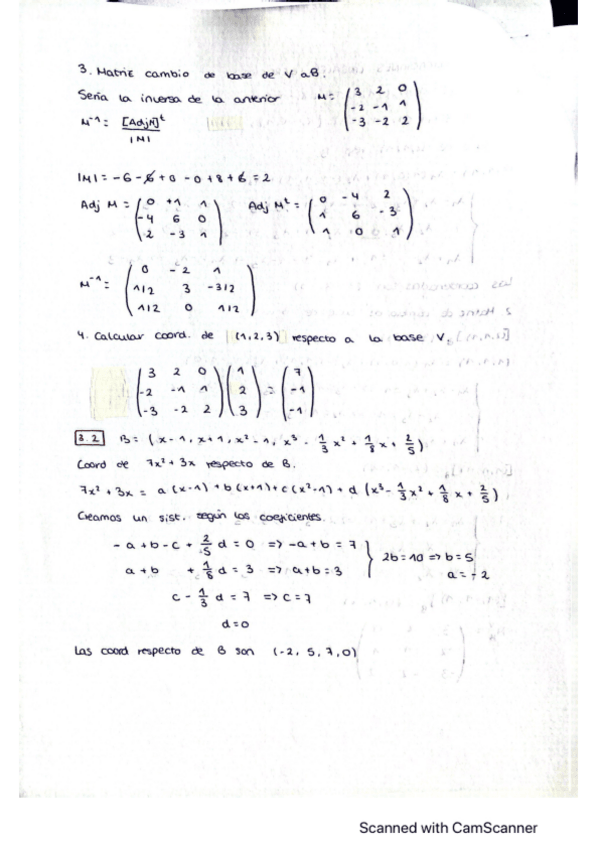 3. Matriz cambio de base de V a B.
Sería la inversa de la anterior M = ( 3 2 0
-2 -1 1
-3 -2 2 )
M⁻¹ = [Adj M]ᵗ
|M|
|M| = -6 - 6 + 0 - 0 + 8 + 6 = 2
Adj M = ( 0 +1 1
-4 6 0
2 -3 1 )
Adj Mᵗ = ( 0 -4 2
1 6 -3
1 0 1 )
M⁻¹ = ( 0 -2 1
1/2 3 -3/2
1/2 0 1/2 )
4. Calcular coord. de (1,2,3) respecto a la base V.
( 3 2 0
-2 -1 1
-3 -2 2 ) ( 1
2
3 ) = ( 7
-1
-1 )
3.2 B = (x-1, x+1, x²-1, x³ - 1/3 x² + 1/8 x + 2/5)
Coord de 7x² + 3x respecto de B.
7x² + 3x = a (x-1) + b (x+1) + c (x²-1) + d (x³ - 1/3 x² + 1/8 x + 2/5)
Creamos un sist. según los coeficientes.
-a + b - c + 2/5 d = 0 => -a + b = 7
a + b + 1/8 d = 3 => a + b = 3
} 2b = 10 => b = 5
a = -2
c - 1/3 d = 7 => c = 7
d = 0
Las coord respecto de B son (-2, 5, 7, 0)
Scanned with CamScanner